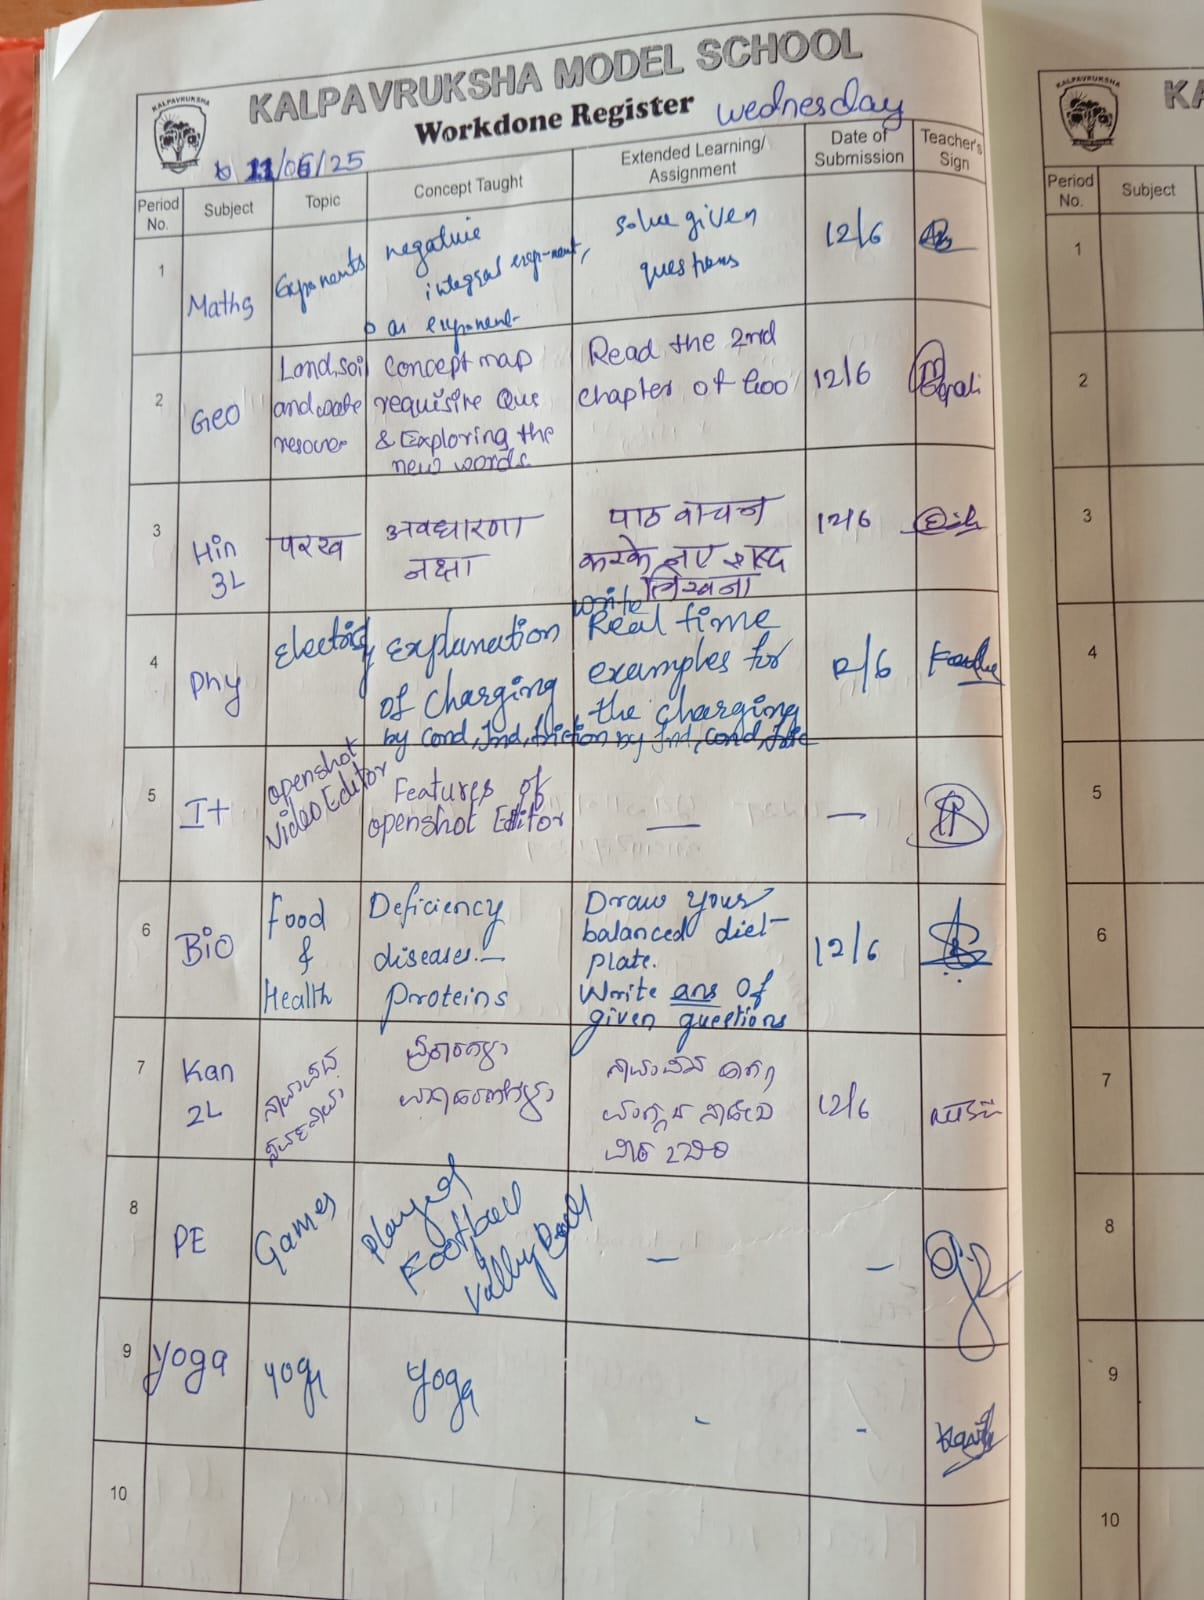 KALPAVRUKSHA MODEL SCHOOL
KALPAVRUKSHA
Workdone Register Wednesday
11/06/25
Period No. Subject Topic Concept Taught Extended Learning/ Assignment Date of Submission Teacher's Sign
1 Maths Exponents negative integral exponent, 0 as exponent solve given questions 12/6
2 Geo Land, soil and wate resource Concept map requisite Que & Exploring the new words. Read the 2nd chapter of Geo 12/6
3 Hin 3L परख अवधारणा नक्षा पाठ वाचन करके नए शब्द लिखना 12/6
4 Phy Electricity Explanation of charging by Cond, Ind, friction write Real time examples for the charging by Ind, Cond, 12/6
5 It openshot Video Editor Features of openshot Editor — —
6 Bio Food & Health Deficiency diseases.— Proteins Draw your balanced diet plate. Write ans of given questions 12/6
7 Kan 2L 12/6
8 PE Games Played Football Volley Ball — —
9 Yoga Yoga Yoga - -
10
KALPAVRUKSHA
KA
Period No. Subject
1
2
3
4
5
6
7
8
9
10